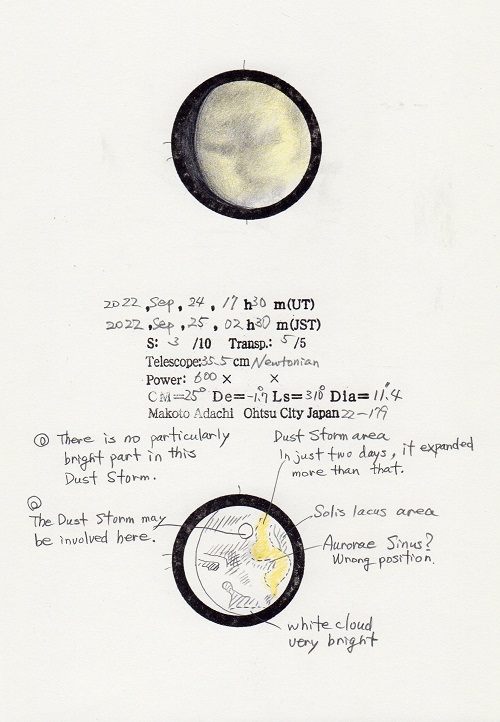 2022, Sep, 24, 17 h30 m(UT)
2022, Sep, 25, 02 h30 m(JST)
S: 3 /10 Transp.: 5 /5
Telescope:35.5 cm Newtonian
Power: 600 × ×
CM=25° De=-1.7° Ls=310° Dia=11.4"
Makoto Adachi Ohtsu City Japan 22-179
◎ There is no particularly
bright part in this
Dust Storm.
Dust Storm area
In just two days, it expanded
more than that.
◎
The Dust Storm may
be involved here.
Solis lacus area
Aurorae Sinus?
Wrong position.
white cloud
very bright